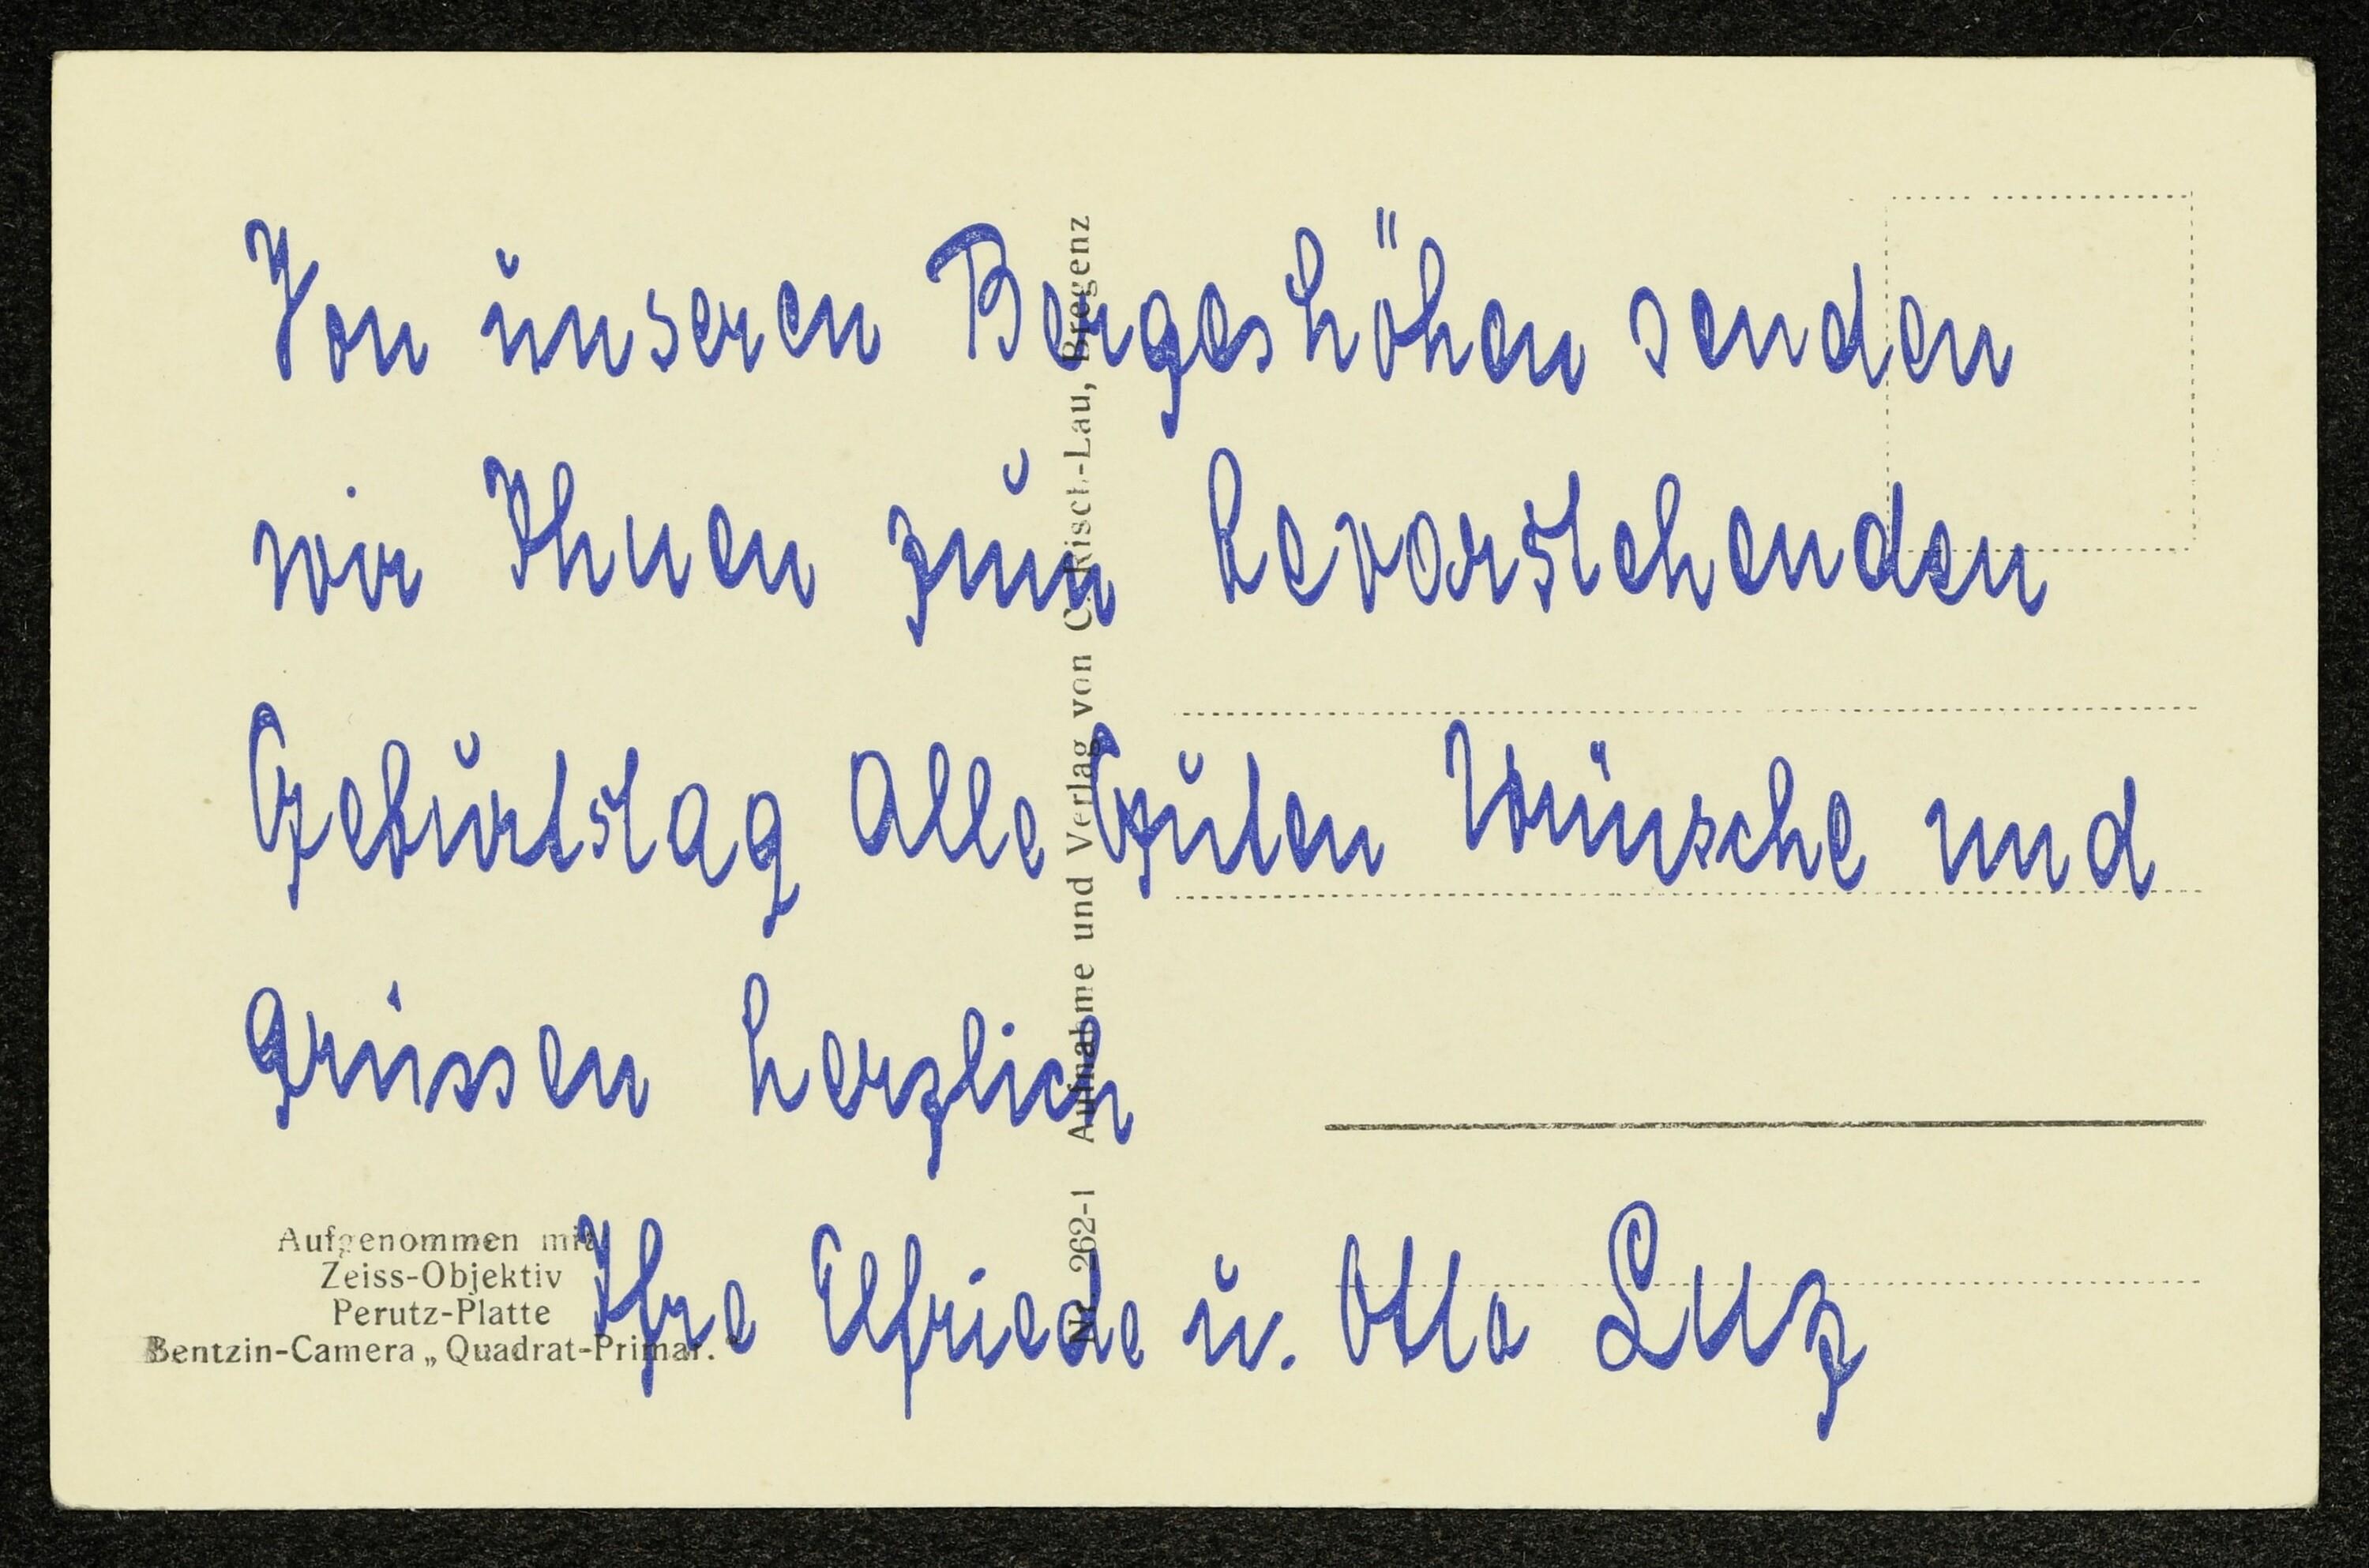 Von unseren Bergeshöhen senden
wir Ihnen zum bevorstehenden
Geburtstag Alle Guten Wünsche und
grüssen herzlich
Ihre Elfriede u. Otto Luz
Aufgenommen mit
Zeiss-Objektiv
Perutz-Platte
Bentzin-Camera „Quadrat-Primar."
Nr. 262-1 Aufnahme und Verlag von C. Risch-Lau, Bregenz